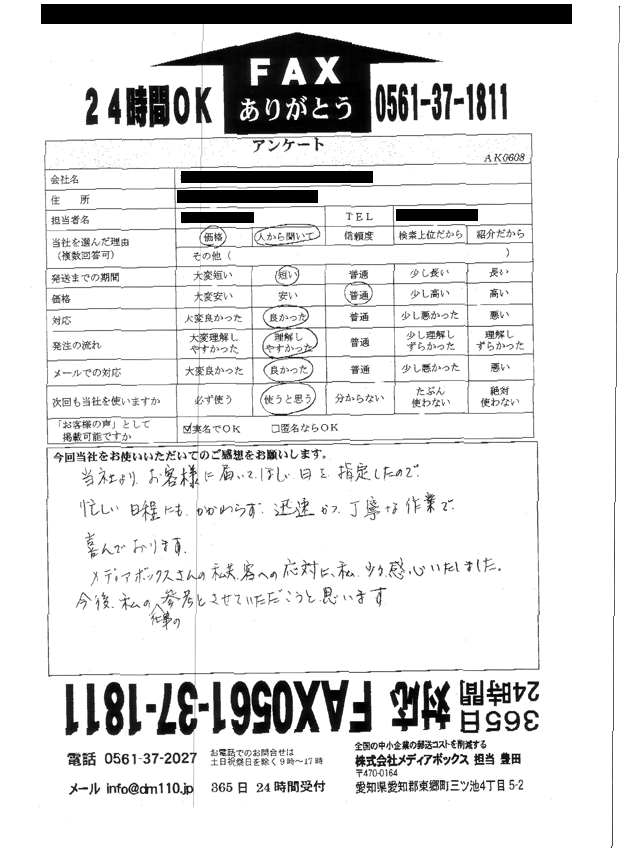 FAX
ありがとう
24時間OK
0561-37-1811
アンケート
AK0608
会社名
住 所
担当者名 TEL
当社を選んだ理由
(複数回答可)
価格 人から聞いて 信頼度 検索上位だから 紹介だから
その他 ( )
発送までの期間 大変短い 短い 普通 少し長い 長い
価格 大変安い 安い 普通 少し高い 高い
対応 大変良かった 良かった 普通 少し悪かった 悪い
発注の流れ 大変理解しやすかった 理解しやすかった 普通 少し理解しずらかった 理解しずらかった
メールでの対応 大変良かった 良かった 普通 少し悪かった 悪い
次回も当社を使いますか 必ず使う 使うと思う 分からない たぶん使わない 絶対使わない
「お客様の声」として
掲載可能ですか
☑実名でOK □匿名ならOK
今回当社をお使いいただいてのご感想をお願いします。
当社より、お客様に届いてほしい日を指定したので、
忙しい日程にもかかわらず、迅速かつ丁寧な作業で
喜んでおります。
メディアボックスさんの 客への応対に、私、 感心いたしました。
今後、私の仕事の参考とさせていただこうと思います
365日
24時間
対応 FAX0561-37-1811
電話 0561-37-2027
お電話でのお問合せは
土日祝祭日を除く9時~17時
メール info@dm110.jp
365日 24時間受付
全国の中小企業の郵送コストを削減する
株式会社メディアボックス 担当 豊田
〒470-0164
愛知県愛知郡東郷町三ツ池4丁目5-2